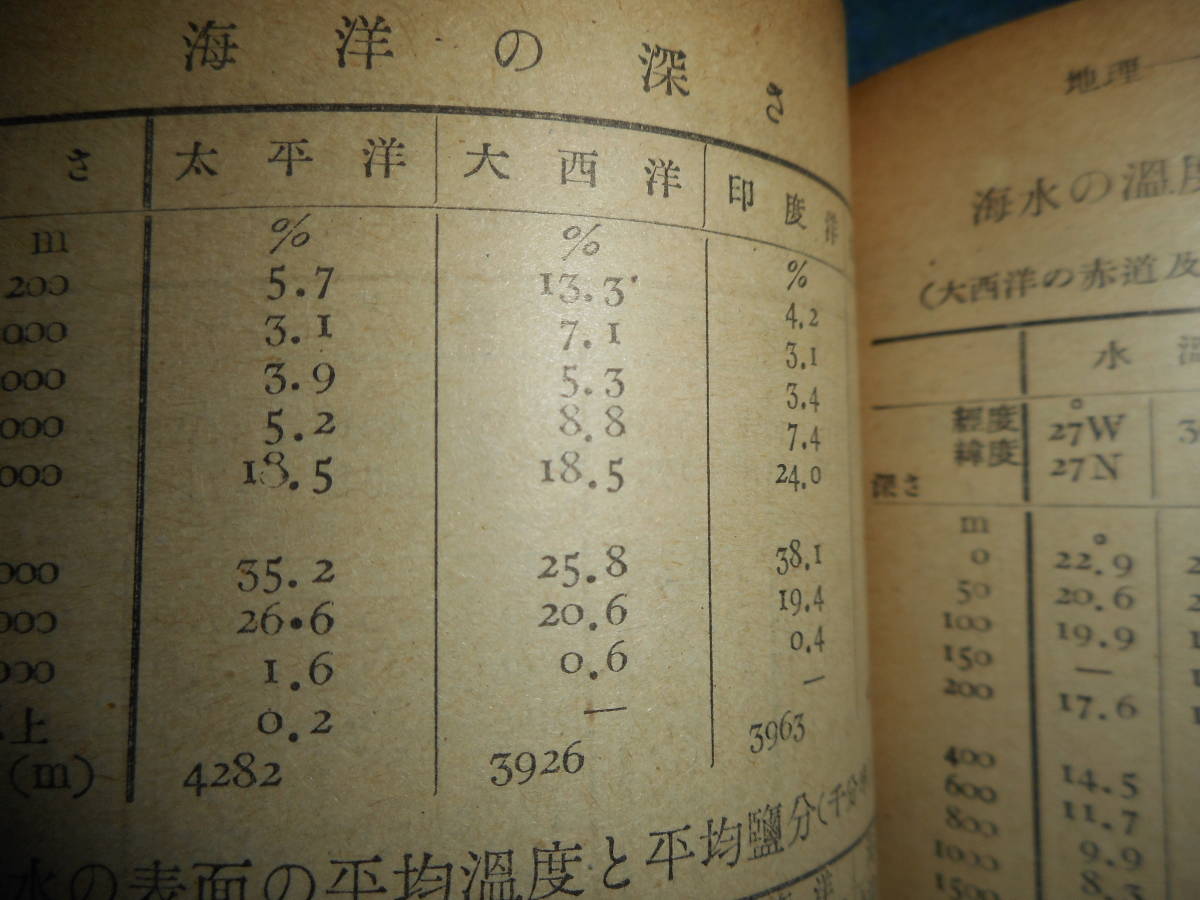 海洋の深さ
さ 太平洋 大西洋 印度洋
m % % %
200 5.7 13.3 4.2
000 3.1 7.1 3.1
000 3.9 5.3 3.4
000 5.2 8.8 7.4
000 18.5 18.5 24.0
000 35.2 25.8 38.1
000 26.6 20.6 19.4
000 1.6 0.6 0.4
上 0.2 — —
(m) 4282 3926 3963
水の表面の平均溫度と平均鹽分(千分
洋
地理
海水の溫度
(大西洋の赤道及
水溫
經度 27°W 3
緯度 27N
深さ
m °
0 22.9 2
50 20.6 2
100 19.9 1
150 — 1
200 17.6 1
400 14.5
600 11.7
800 9.9
1000 8.3
1500